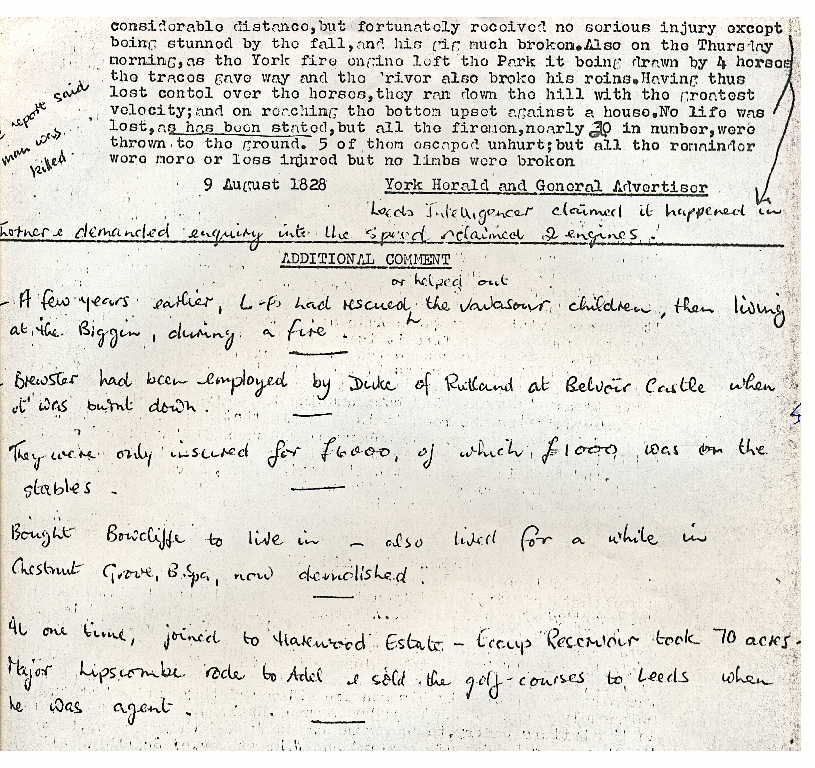 considerable distance,but fortunately received no serious injury except
being stunned by the fall,and his gig much broken.Also on the Thursday
morning,as the York fire engine left the Park it being drawn by 4 horses
the traces gave way and the 'rivor also broke his reins.Having thus
lost contol over the horses,they ran down the hill with the greatest
velocity;and on reaching the bottom upset against a house.No life was
lost,as has been stated,but all the firemen,nearly 30 in number,were
thrown to the ground. 5 of them escaped unhurt;but all the remainder
were more or less injured but no limbs were broken
report said
man was
killed.
9 August 1828 York Herald and General Advertiser
Leeds Intelligencer claimed it happened in
demanded enquiry into the speed claimed 2 engines.
ADDITIONAL COMMENT
or helped out
- A few years earlier, L-Fs had rescued the Vavasour children, then living
at the Biggin, during a fire.
- Brewster had been employed by Duke of Rutland at Belvoir Castle when
it was burnt down.
They were only insured for £6000, of which £1000 was on the
stables.
Bought Bowcliffe to live in - also lived for a while in
Chestnut Grove, B.Spa, now demolished.
At one time, joined to Harewood Estate - Eccup Reservoir took 70 acres.
Major Lipscombe rode to Adel & sold the golf-courses to Leeds when
he was agent.